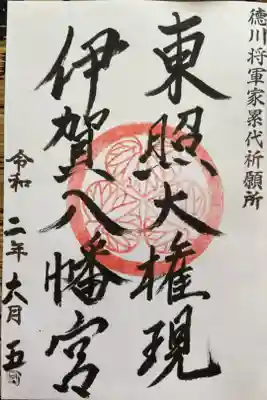 徳川将軍家累代祈願所
東照大権現
伊賀八幡宮
令和二年六月五日